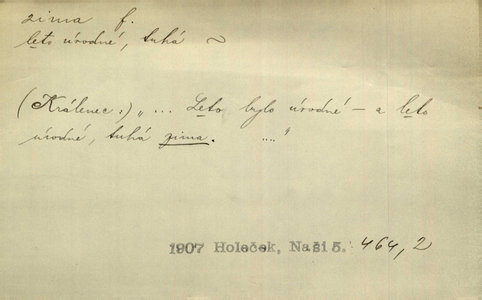 zima f.
leto úrodné, tuhá ~
(Králenec:) „ ... Leto bylo úrodné – a leto
úrodné, tuhá zima. ...."
1907 Holeček, Naši 5. 464,2